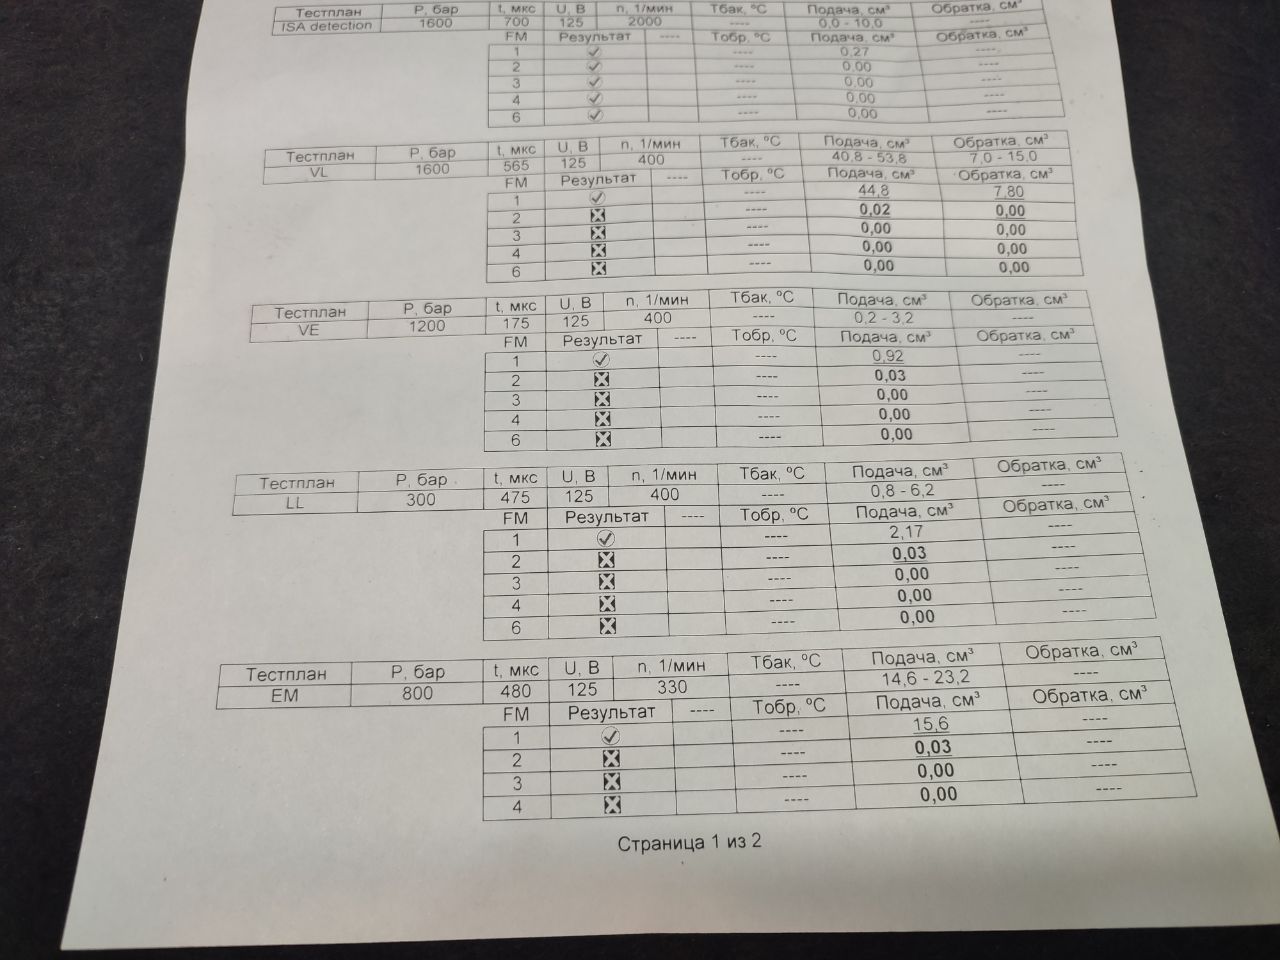 Тестплан P, бар t, мкс U, В n, 1/мин Тбак, °C Подача, см³ Обратка, см³
ISA detection 1600 700 125 2000 ---- 0,0 - 10,0 ----
FM Результат ---- Тобр, °C Подача, см³ Обратка, см³
1 ---- 0,27 ----
2 ---- 0,00 ----
3 ---- 0,00 ----
4 ---- 0,00 ----
6 ---- 0,00 ----
Тестплан P, бар t, мкс U, В n, 1/мин Тбак, °C Подача, см³ Обратка, см³
VL 1600 565 125 400 ---- 40,8 - 53,8 7,0 - 15,0
FM Результат ---- Тобр, °C Подача, см³ Обратка, см³
1 ---- 44,8 7,80
2 ---- 0,02 0,00
3 ---- 0,00 0,00
4 ---- 0,00 0,00
6 ---- 0,00 0,00
Тестплан P, бар t, мкс U, В n, 1/мин Тбак, °C Подача, см³ Обратка, см³
VE 1200 175 125 400 ---- 0,2 - 3,2 ----
FM Результат ---- Тобр, °C Подача, см³ Обратка, см³
1 ---- 0,92 ----
2 ---- 0,03 ----
3 ---- 0,00 ----
4 ---- 0,00 ----
6 ---- 0,00 ----
Тестплан P, бар t, мкс U, В n, 1/мин Тбак, °C Подача, см³ Обратка, см³
LL 300 475 125 400 ---- 0,8 - 6,2 ----
FM Результат ---- Тобр, °C Подача, см³ Обратка, см³
1 ---- 2,17 ----
2 ---- 0,03 ----
3 ---- 0,00 ----
4 ---- 0,00 ----
6 ---- 0,00 ----
Тестплан P, бар t, мкс U, В n, 1/мин Тбак, °C Подача, см³ Обратка, см³
EM 800 480 125 330 ---- 14,6 - 23,2 ----
FM Результат ---- Тобр, °C Подача, см³ Обратка, см³
1 ---- 15,6 ----
2 ---- 0,03 ----
3 ---- 0,00 ----
4 ---- 0,00 ----
Страница 1 из 2